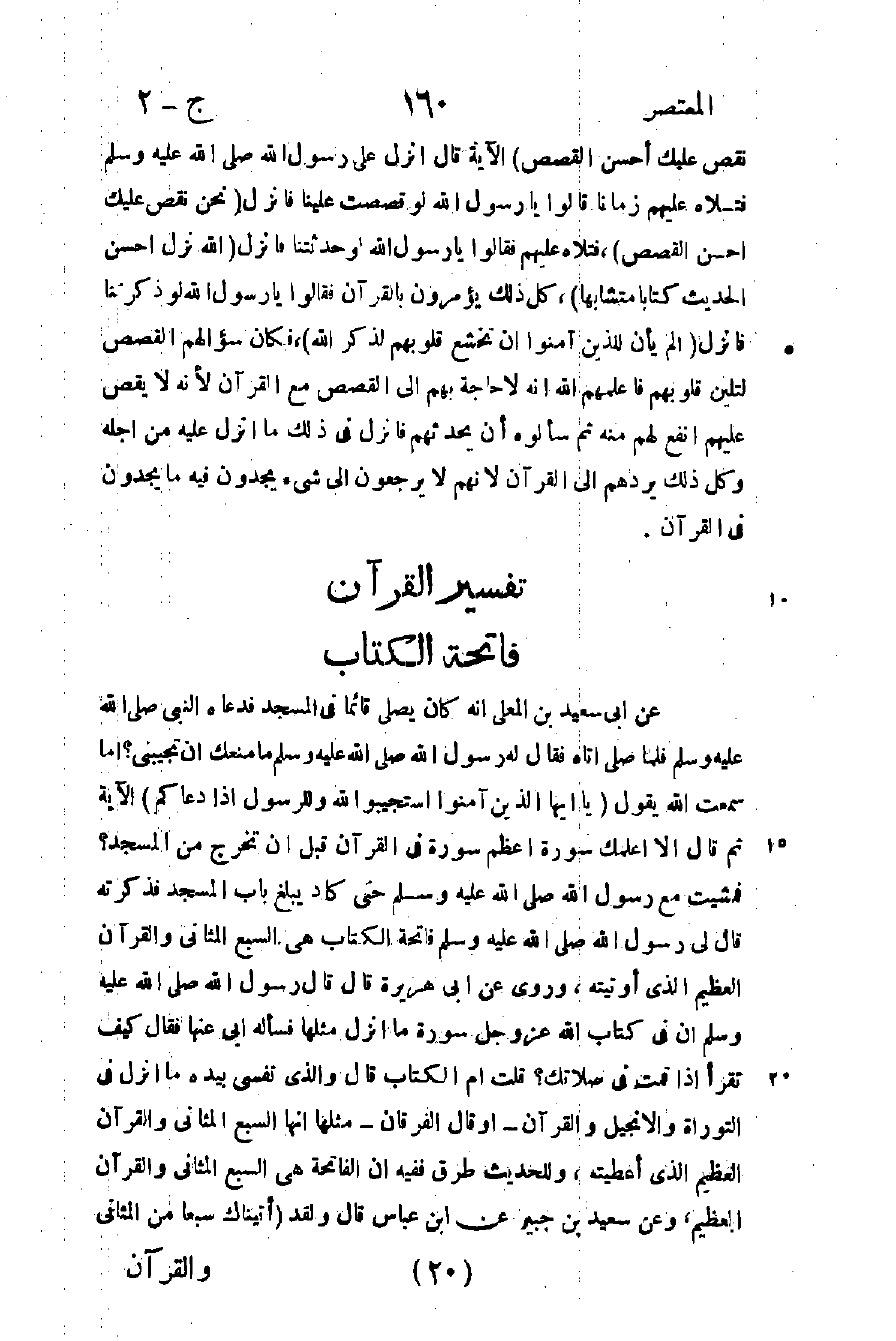 المعتصر ١٦٠ ج - ٢
نقص عليك أحسن القصص) الآية قال انزل على رسول الله صلى الله عليه وسلم
فتلاه عليهم زمانا قالوا يا رسول الله لو قصصت علينا فانزل (نحن نقص عليك
احسن القصص)، فتلاه عليهم فقالوا يا رسول الله لو حدثتنا فانزل (الله نزل احسن
الحديث كتابا متشابها)، كل ذلك يؤمرون بالقرآن فقالوا يا رسول الله لو ذكرتنا
فانزل (الم يأن للذين آمنوا ان تخشع قلوبهم لذكر الله)، فكان سؤالهم القصص ٥
لتلين قلوبهم فاعلمهم الله انه لا حاجة بهم الى القصص مع القرآن لأنه لا يقص
عليهم انفع لهم منه ثم سألوه أن يحدثهم فانزل فى ذلك ما انزل عليه من اجله
وكل ذلك يردهم الى القرآن لانهم لا يرجعون الى شىء يجدون فيه ما يجدون
فى القرآن .
تفسير القرآن ١٠
فاتحة الكتاب
عن ابى سعيد بن المعلى انه كان يصلى قائما فى المسجد فدعاه النبى صلى الله
عليه وسلم فلما صلى اتاه فقال له رسول الله صلى الله عليه وسلم ما منعك ان تجيبنى؟ اما
سمعت الله يقول (يا ايها الذين آمنوا استجيبوا لله وللرسول اذا دعاكم) الآية
ثم قال الا اعلمك سورة اعظم سورة فى القرآن قبل ان تخرج من المسجد؟ ١٥
فمشيت مع رسول الله صلى الله عليه وسلم حتى كاد يبلغ باب المسجد فذكرته
قال لى رسول الله صلى الله عليه وسلم فاتحة الكتاب هى السبع المثانى والقرآن
العظيم الذى أوتيته، وروى عن ابى هريرة قال قال رسول الله صلى الله عليه
وسلم ان فى كتاب الله عزوجل سورة ما انزل مثلها فسأله ابى عنها فقال كيف
تقرأ اذا قمت فى صلاتك؟ قلت ام الكتاب قال والذى نفسى بيده ما انزل فى ٢٠
التوراة والانجيل والقرآن - اوقال الفرقان - مثلها انها السبع المثانى والقرآن
العظيم الذى أعطيته، وللحديث طرق ففيه ان الفاتحة هى السبع المثانى والقرآن
العظيم، وعن سعيد بن جبير عن ابن عباس قال ولقد (أتيناك سبعا من المثانى
(٢٠) والقرآن